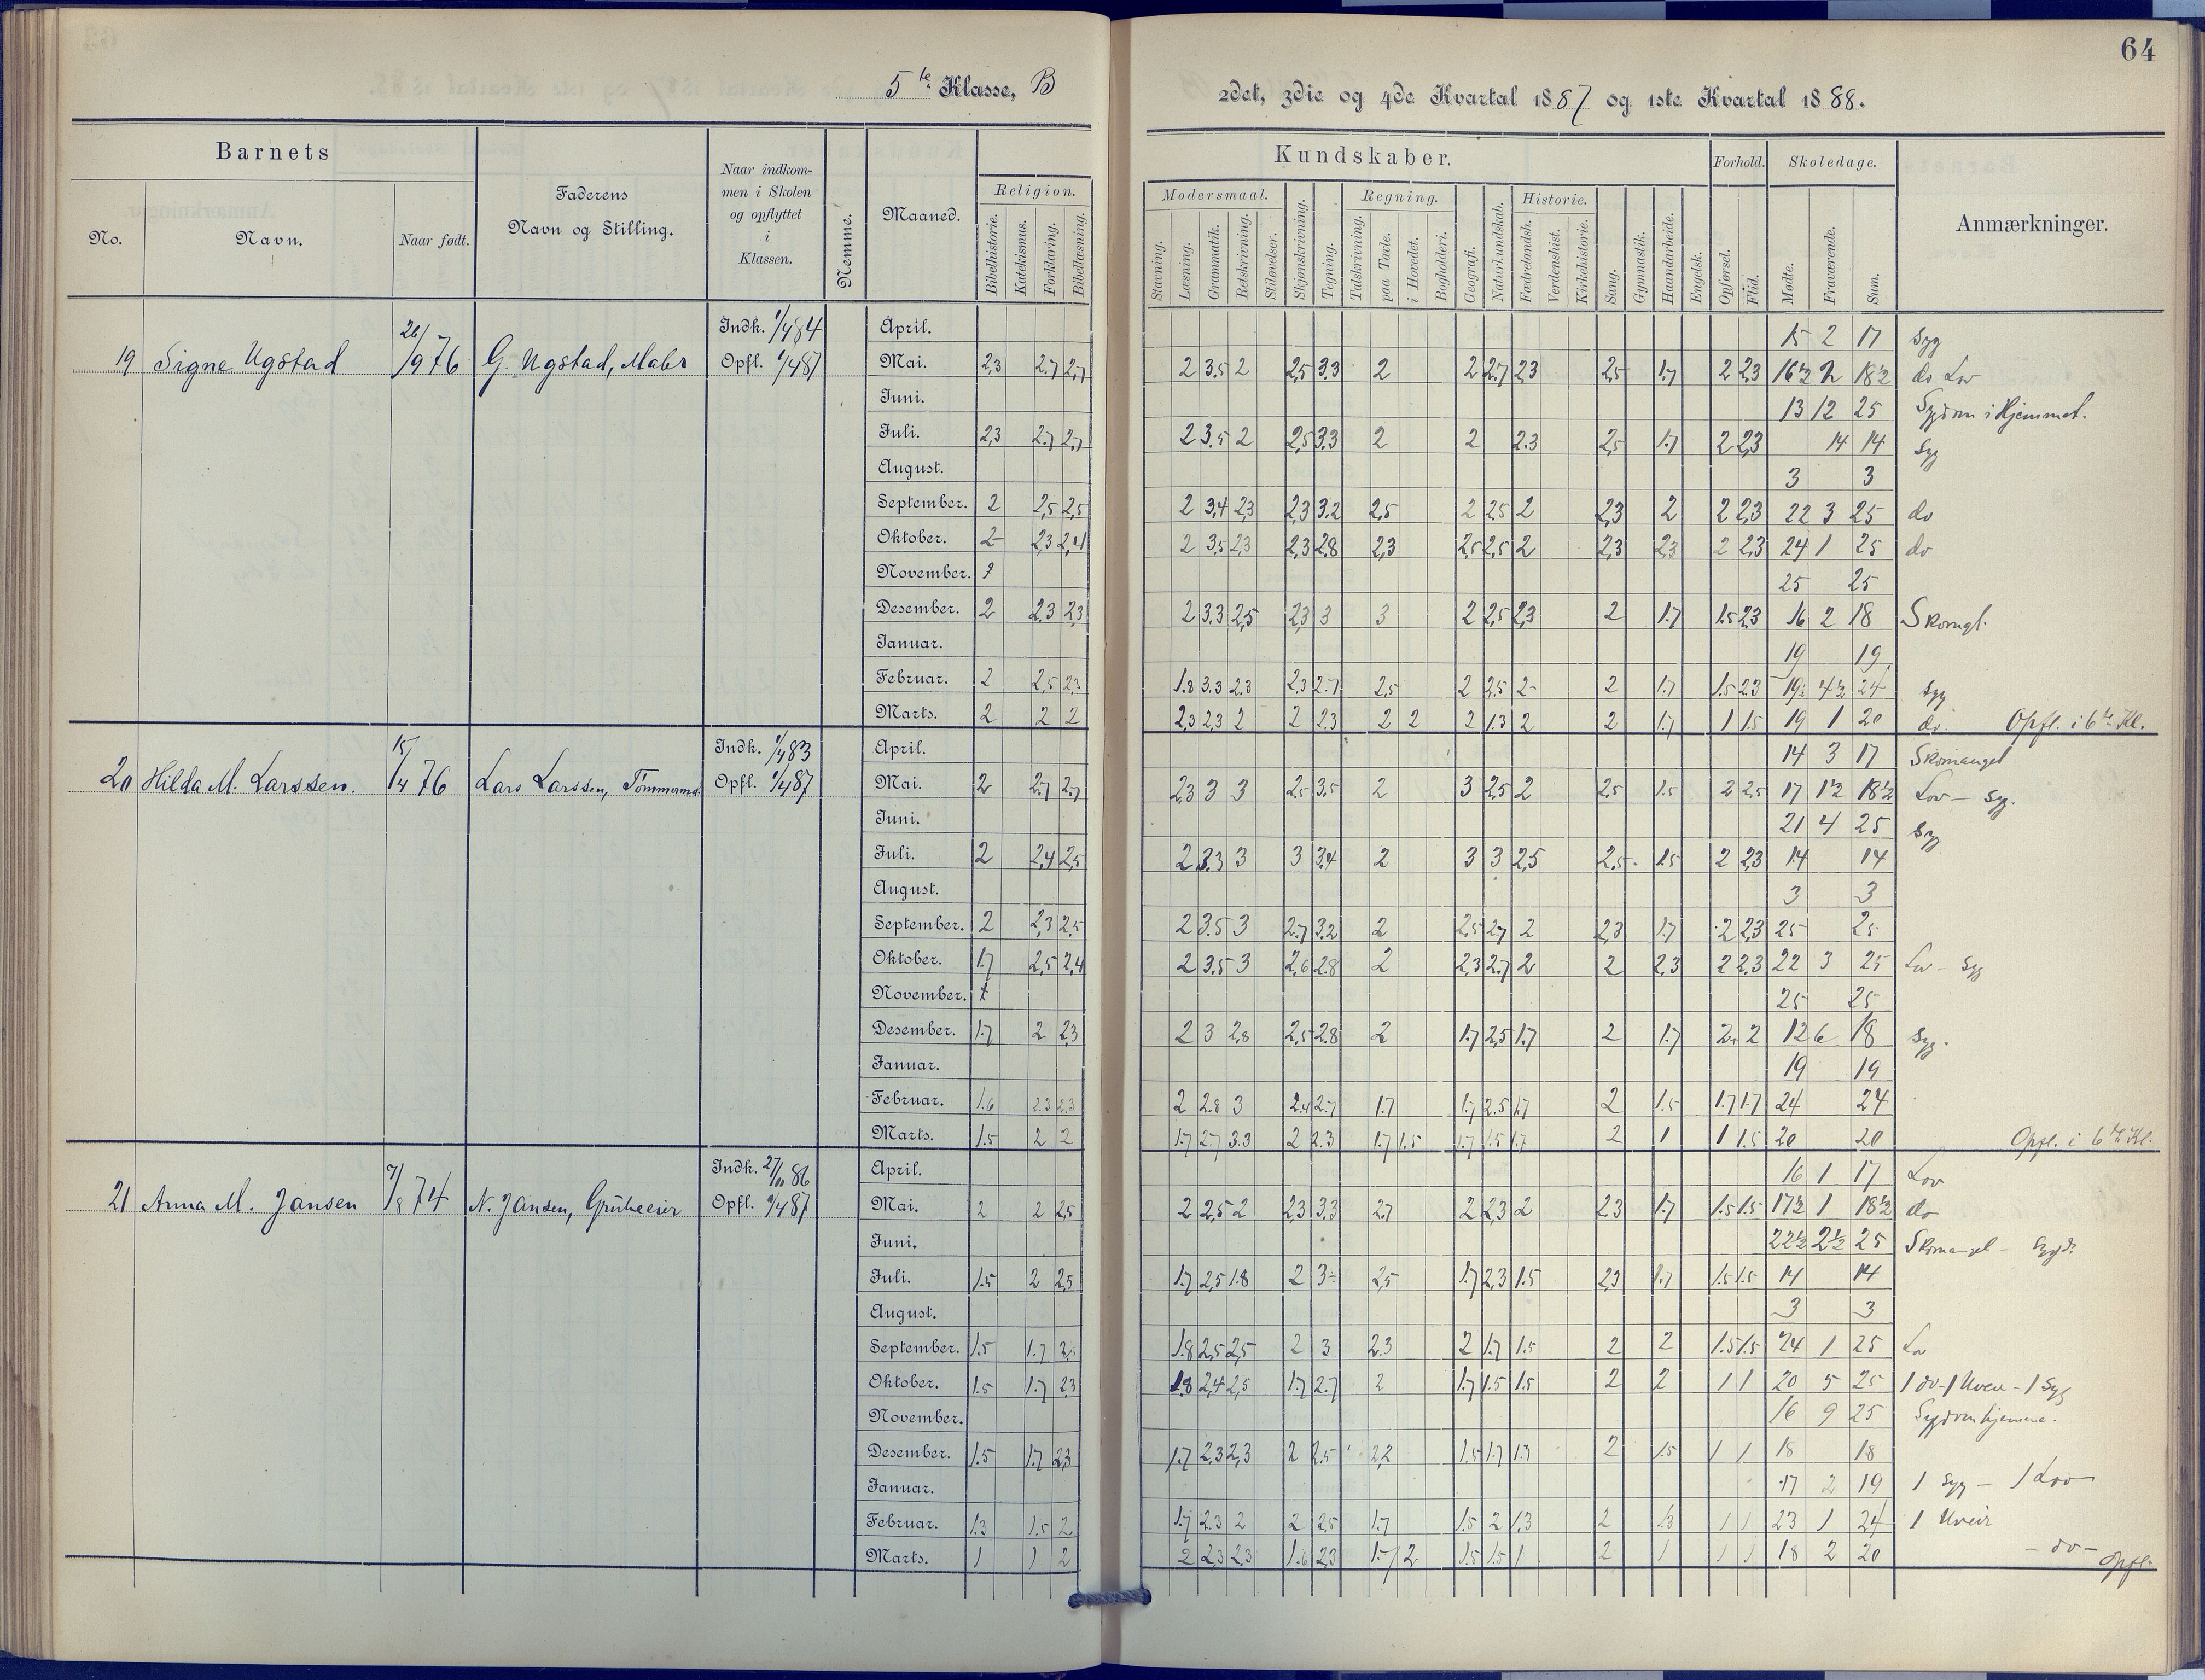 64
5te Klasse, B
2det, 3die og 4de Kvartal 1887 og 1ste Kvartal 1888.
Barnets
No.
Navn.
Naar født.
Faderens
Navn og Stilling.
Naar indkom-
men i Skolen
og opflyttet
i
Klassen.
Nemme.
Maaned.
Religion.
Bibelhistorie.
Katekismus.
Forklaring.
Bibellæsning.
Kundskaber.
Modersmaal.
Stavning.
Læsning.
Grammatik.
Retskrivning.
Stiløvelser.
Skjønskrivning.
Tegning.
Regning.
Talskrivning.
paa Tavle.
i Hovedet.
Bogholderi.
Geografi.
Naturkundskab.
Historie.
Fædrelandsh.
Verdenshist.
Kirkehistorie.
Sang.
Gymnastik.
Haandarbeide.
Engelsk.
Forhold.
Opførsel.
Flid.
Skoledage.
Mødte.
Fraværende.
Sum.
Anmærkninger.
19 Signe Ugstad 26/9 76 G. Ugstad, Maler
Indk. 1/4 84
Opfl. 1/4 87
April. 15 2 17 Syg
Mai. 2,3 2.7 2,7 2 3.5 2 2,5 3.3 2 2 2.7 2,3 2,5 1.7 2 2,3 16½ 2 18½ do Lov
Juni. 13 12 25 Sygdom i Hjemmet.
Juli. 2,3 2.7 2,7 2 3.5 2 2,5 3.3 2 2 2.3 2,5 1.7 2 2,3 14 14 Syg
August. 3 3
September. 2 2,5 2,5 2 3,4 2,3 2,3 3.2 2,5 2 2,5 2 2,3 2 2 2,3 22 3 25 do
Oktober. 2 2,3 2,4 2 3,5 2,3 2,3 2.8 2,3 2,5 2,5 2 2,3 2,3 2 2,3 24 1 25 do
November. 25 25
Desember. 2 2,3 2,3 2 3.3 2,5 2,3 3 3 2 2,5 2,3 2 1.7 1.5 2.3 16 2 18 Skomgl.
Januar. 19 19
Februar. 2 2,5 2.3 1.8 3.3 2.3 2,3 2.7 2,5 2 2,5 2 2 1.7 1.5 2.3 19½ 4½ 24 Syg
Marts. 2 2 2 2,3 2,3 2 2 2.3 2 2 2 1.3 2 2 1.7 1 1.5 19 1 20 do. Opfl. i 6te Kl.
20 Hilda M. Larssen. 15/4 76 Lars Larssen, Tømmerm.
Indk. 1/4 83
Opfl. 1/4 87
April. 14 3 17 Skomangel
Mai. 2 2.7 2.7 2,3 3 3 2,5 3.5 2 3 2,5 2 2,5 1.5 2 2.5 17 1½ 18½ Lov - Syg.
Juni. 21 4 25 Syg
Juli. 2 2,4 2,5 2 3.3 3 3 3,4 2 3 3 2,5 2,5 1.5 2 2,3 14 14
August. 3 3
September. 2 2,3 2,5 2 3.5 3 2.7 3.2 2 2,5 2,7 2 2,3 1.7 2 2,3 25 25
Oktober. 1.7 2,5 2,4 2 3.5 3 2,6 2.8 2 2,3 2.7 2 2 2,3 2 2,3 22 3 25 Lov - Syg
November. 25 25
Desember. 1.7 2 2,3 2 3 2,8 2,5 2.8 2 1.7 2,5 1.7 2 1.7 2 2 12 6 18 Syg.
Januar. 19 19
Februar. 1.6 2.3 2.3 2 2.8 3 2.4 2.7 1.7 1.7 2.5 1.7 2 1.5 1.7 1.7 24 24
Marts. 1.5 2 2 1.7 2.7 3.3 2 2.3 1.7 1.5 1.7 1.5 1.7 2 1 1 1.5 20 20 Opfl. i 6te Kl.
21 Anna M. Jansen 7/8 74 N. Jansen, Grubeeier
Indk. 27/10 86
Opfl. 1/4 87
April. 16 1 17 Lov
Mai. 2 2 2,5 2 2,5 2 2,3 3.3 2.7 2 2,3 2 2.3 1.7 1.5 1.5 17½ 1 18½ do
Juni. 22½ 2½ 25 Skomangel - Sygd.
Juli. 1.5 2 2,5 1.7 2,5 1.8 2 3 2,5 1.7 2,3 1.5 2,3 1.7 1.5 1.5 14 14
August. 3 3
September. 1.5 1.7 2,5 1.8 2,5 2,5 2 3 2.3 2 1.7 1.5 2 2 1.5 1.5 24 1 25 Lov
Oktober. 1.5 1.7 2,3 1.8 2,4 2,5 1.7 2.7 2 1.7 1.5 1.5 2 2 1 1 20 5 25 1 Syg
November. 16 9 25 Sygdom hjemme.
Desember. 1.5 1.7 2,3 1.7 2.3 2,3 2 2,5 2,2 1.5 1.7 1.3 2 1.5 1 1 18 18
Januar. 17 2 19 1 Syg - 1 Lov
Februar. 1.3 1.5 2 1.7 2.3 2 2 2,5 1.7 1.5 2 1,3 2 1.3 1 1 23 1 24 1 Uveir
Marts. 1 1 2 2 2,3 2.3 1.6 2,3 1.7 2 1.5 1.5 1 2 1 1 1 18 2 20 - do - Opfl.